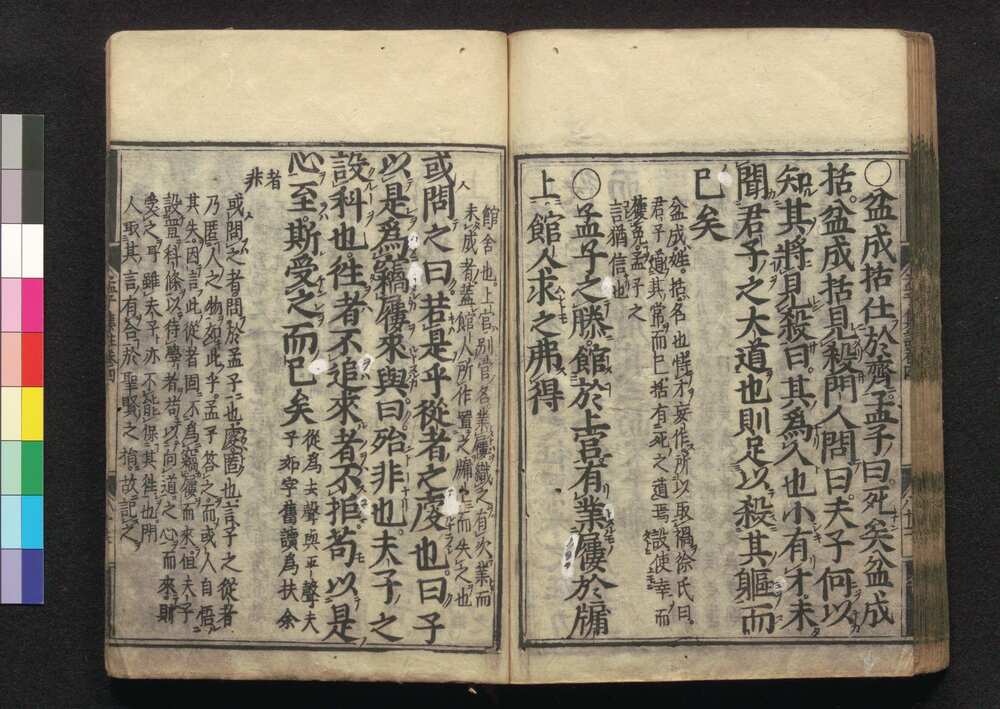 〇盆成括仕於齊孟子曰死矣盆成
括盆成括見殺門人問曰夫子何以
知其將見殺曰其爲人也小有才未
聞君子之大道也則足以殺其軀而
已矣
盆成姓括名也恃才妄作所以取禍徐氏曰
君子道其常而已括有死之道焉設使幸而
獲免孟子之
言猶信也
〇孟子之滕館於上宮有業屨於牖
上館人求之弗得
館舍也上宮別宮名業屨織之有次業而
未成者蓋館人所作置之牖上而失之也
或問之曰若是乎從者之廋也曰子
以是爲竊屨來與曰殆非也夫子之
設科也徃者不追來者不拒苟以是
心至斯受之而已矣
從爲去聲與平聲夫
子如字舊讀爲扶余
者
非
或問之者問於孟子也廋匿也言子之從者
乃匿人之物如此乎孟子答之而或人自悟
其失因言此從者固不爲竊屨而來但夫子
設置科條以待學者苟以向道之心而來則
受之耳雖夫子亦不能保其徃也門
人取其言有合於聖賢之指故記之